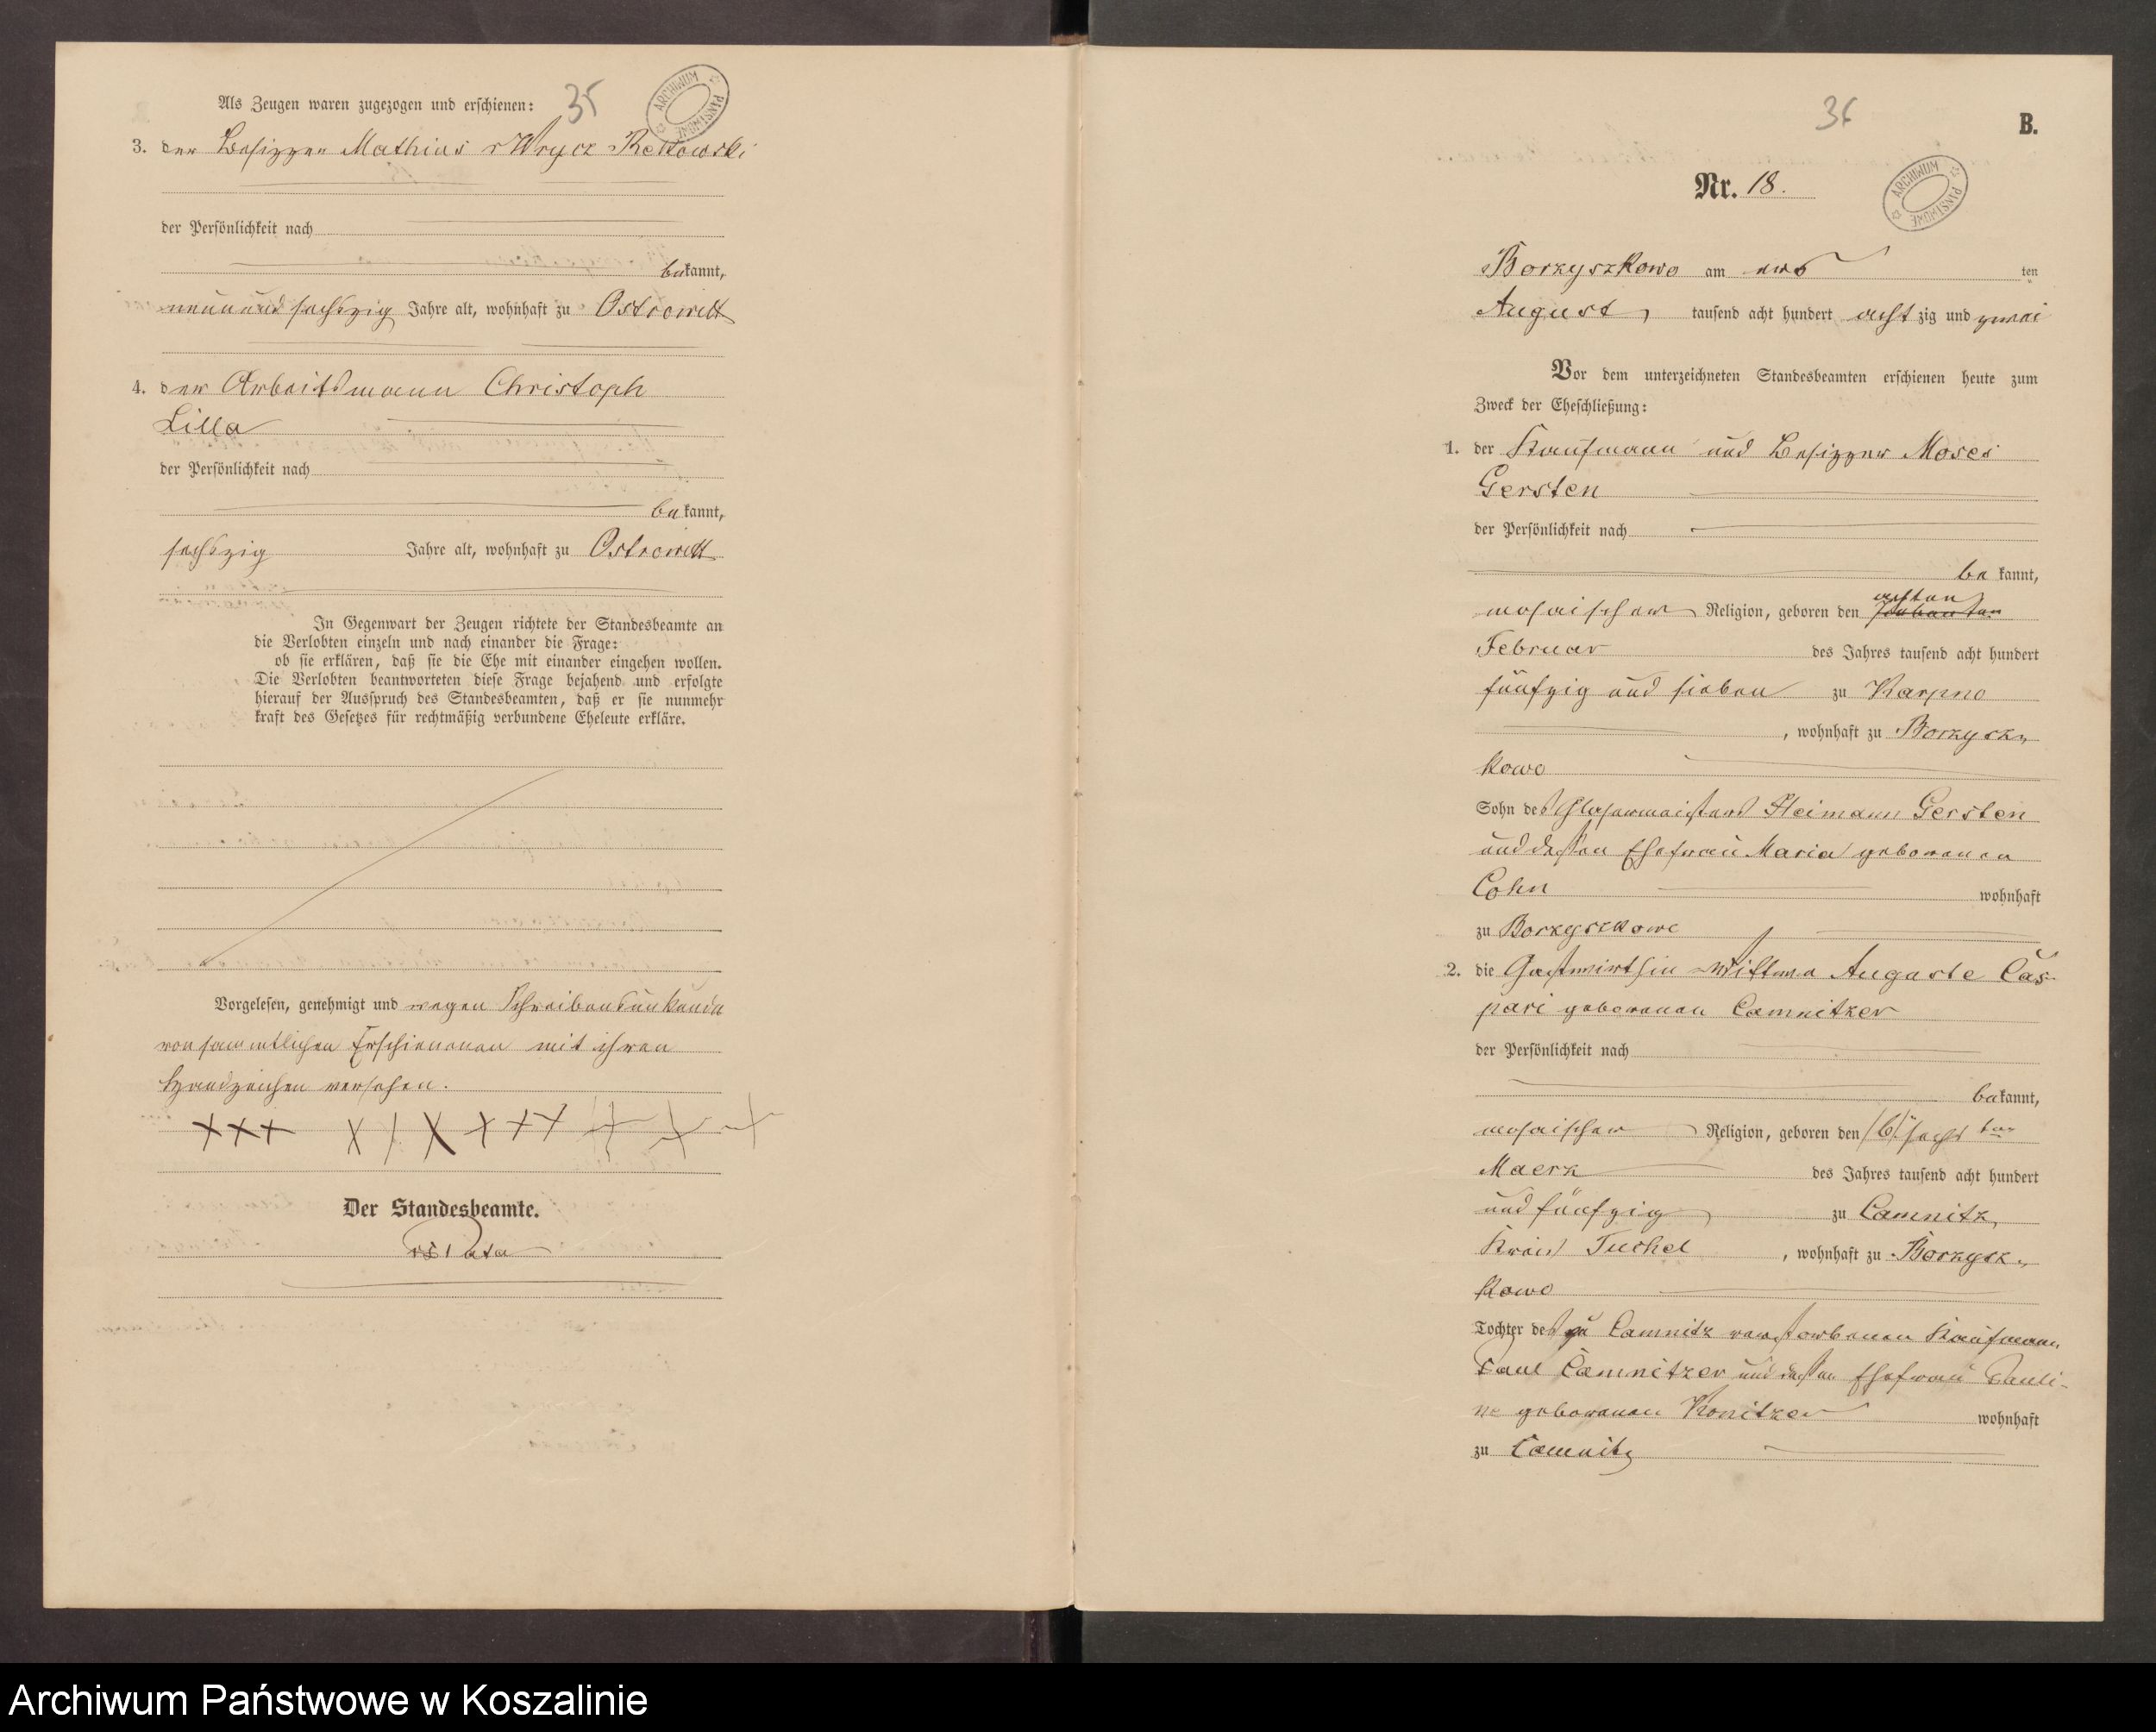 35
ARCHIWUM PAŃSTWOWE
Als Zeugen waren zugezogen und erschienen:
3. der Besitzer Mathias Wrycz Rekowski
der Persönlichkeit nach
bekannt,
neunundsechszig Jahre alt, wohnhaft zu Ostrowitt
4. der Arbeitsmann Christoph
Lilla
der Persönlichkeit nach
bekannt,
sechszig Jahre alt, wohnhaft zu Ostrowitt
In Gegenwart der Zeugen richtete der Standesbeamte an
die Verlobten einzeln und nach einander die Frage:
ob sie erklären, daß sie die Ehe mit einander eingehen wollen.
Die Verlobten beantworteten diese Frage bejahend und erfolgte
hierauf der Ausspruch des Standesbeamten, daß er sie nunmehr
kraft des Gesetzes für rechtmäßig verbundene Eheleute erkläre.
Vorgelesen, genehmigt und wegen Schreibensunkunde
von sammtlichen Erschienenen mit ihren
Handzeichen versehen.
+++ +++ +++ +++
Der Standesbeamte.
36
B.
Nr. 18.
ARCHIWUM PAŃSTWOWE
Borzyszkowo am ten
August, tausend acht hundert acht zig und zwei
Vor dem unterzeichneten Standesbeamten erschienen heute zum
Zweck der Eheschließung:
1. der Kaufmann und Besitzer Moses
Gersten
der Persönlichkeit nach
bekannt,
achten
mosaischer Religion, geboren den siebenten
Februar des Jahres tausend acht hundert
fünfzig und sieben zu Karpno
, wohnhaft zu Borzysz-
kowo
Sohn des Glasermeisters Heimann Gersten
und dessen Ehefrau Maria geborenen
Cohn wohnhaft
zu Borzyszkowo
2. die Gastwirthin Wittwe Auguste Cas-
pari geborenen Camnitzer
der Persönlichkeit nach
bekannt,
mosaischer Religion, geboren den /6/ sechs ten
Maerz des Jahres tausend acht hundert
und fünfzig zu Camnitz,
Kreis Tuchel, wohnhaft zu Borzysz-
kowo
Tochter des zu Camnitz verstorbenen Kaufmann
Paul Camnitzer und dessen Ehefrau Pauli-
ne geborenen Konitzer wohnhaft
zu Camnitz
Archiwum Państwowe w Koszalinie